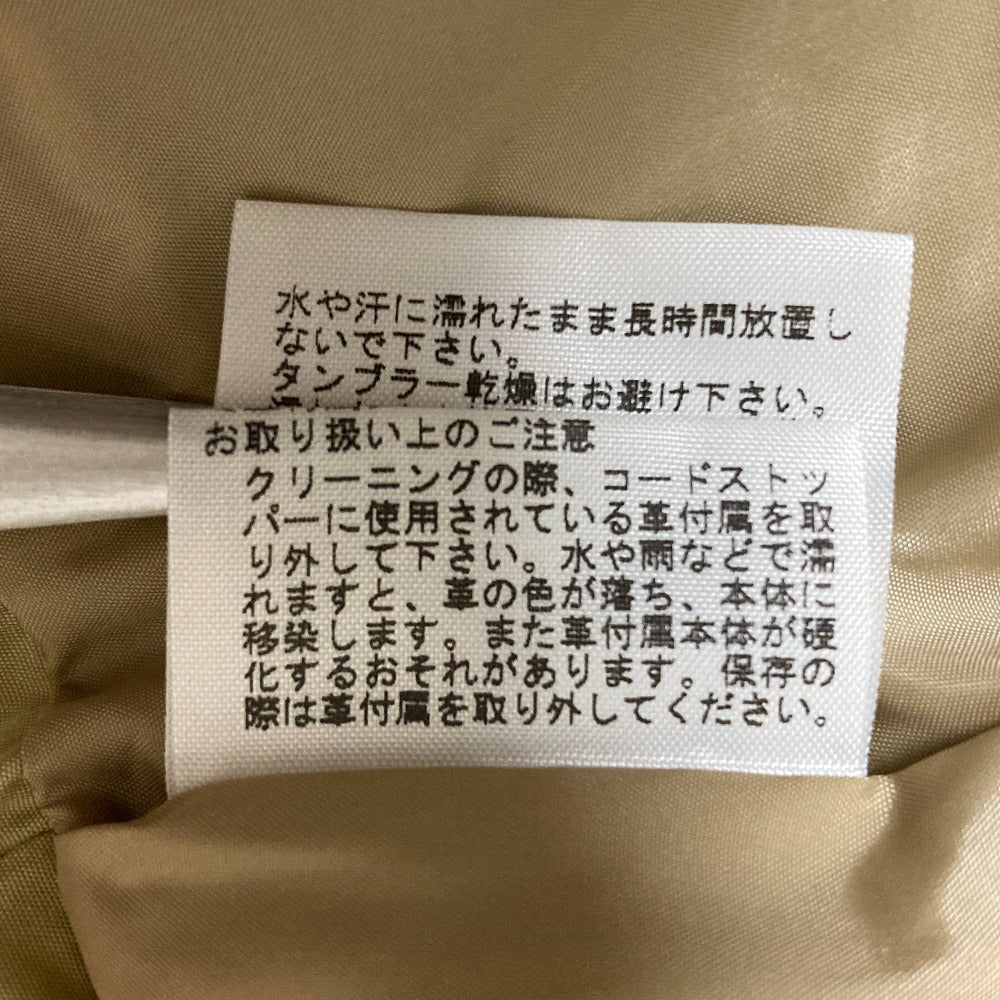 水や汗に濡れたまま長時間放置し
ないで下さい。
タンブラー乾燥はお避け下さい。
お取り扱い上のご注意
クリーニングの際、コードストッ
パーに使用されている革付属を取
り外して下さい。水や雨などで濡
れますと、革の色が落ち、本体に
移染します。また革付属本体が硬
化するおそれがあります。保存の
際は革付属を取り外してください。